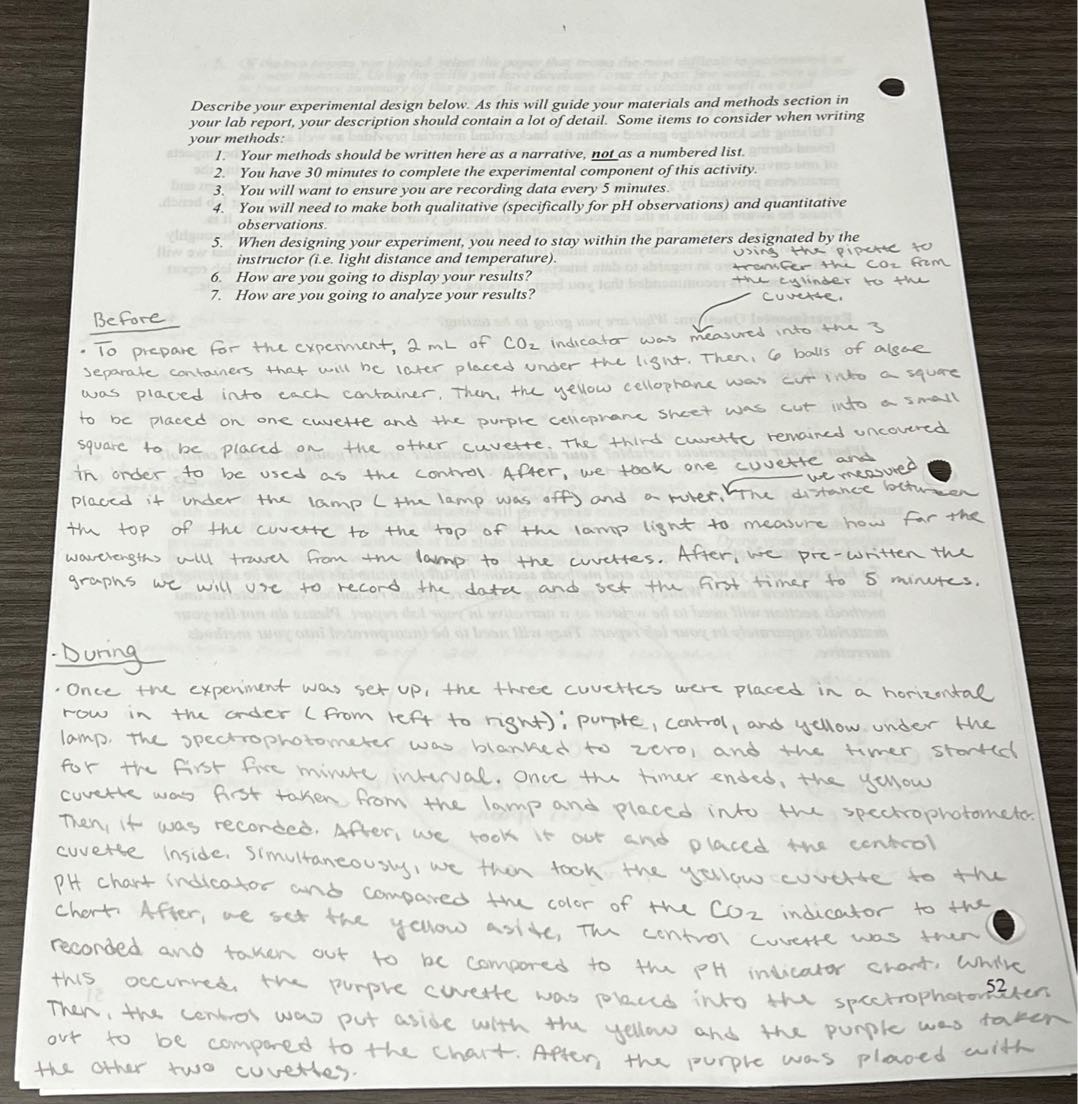 Describe your experimental design below. As this will guide your materials and methods section in
your lab report, your description should contain a lot of detail. Some items to consider when writing
your methods:
1. Your methods should be written here as a narrative, not as a numbered list.
2. You have 30 minutes to complete the experimental component of this activity.
3. You will want to ensure you are recording data every 5 minutes.
4. You will need to make both qualitative (specifically for pH observations) and quantitative
observations.
5. When designing your experiment, you need to stay within the parameters designated by the
instructor (i.e. light distance and temperature).
6. How are you going to display your results?
7. How are you going to analyze your results?
using the pipette to
transfer the CO2 from
the cylinder to the
cuvette.
Before
• To prepare for the experiment, 2 mL of CO2 indicator was measured into the 3
separate containers that will be later placed under the light. Then, 6 balls of algae
was placed into each container. Then, the yellow cellophane was cut into a square
to be placed on one cuvette and the purple cellophane sheet was cut into a small
square to be placed on the other cuvette. The third cuvette remained uncovered
in order to be used as the control. After, we took one cuvette and
we measured
placed it under the lamp (the lamp was off) and a ruler. The distance between
the top of the cuvette to the top of the lamp light to measure how far the
wavelengths will travel from the lamp to the cuvettes. After, we pre-written the
graphs we will use to record the data and set the first timer to 5 minutes.
- During
• Once the experiment was set up, the three cuvettes were placed in a horizontal
row in the order (from left to right); purple, control, and yellow under the
lamp. The spectrophotometer was blanked to zero, and the timer started
for the first five minute interval. Once the timer ended, the yellow
cuvette was first taken from the lamp and placed into the spectrophotometer.
Then, it was recorded. After, we took it out and placed the control
cuvette inside. Simultaneously, we then took the yellow cuvette to the
PH chart indicator and compared the color of the CO2 indicator to the
chart. After, we set the yellow aside, The control cuvette was then
recorded and taken out to be compared to the PH indicator chart. While
this occurred, the purple cuvette was placed into the spectrophotometer.
52
Then, the control was put aside with the yellow and the purple was taken
out to be compared to the chart. After, the purple was placed with
the other two cuvettes.